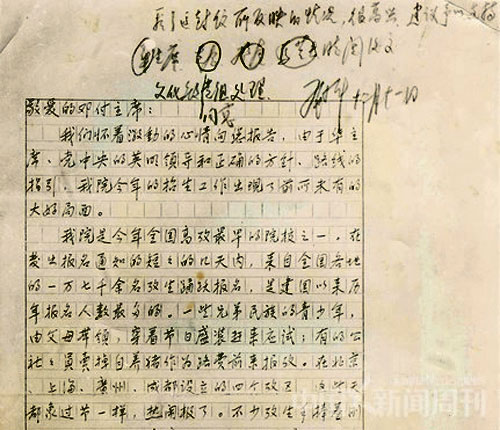 看了这封信所反映的情况,很高兴,建议予以支持
华主席 阅后交
文化部党组处理
十二月十一日
敬爱的邓付主席:
我们怀着激动的心情向您报告,由于华主
席、党中央的英明领导和正确的方针、路线的
指引,我院今年的招生工作出现了前所未有的
大好局面。
我院是今年全国高攷最早的院校之一。在
发出报名通知的短〻的几天内,来自全国各地
的一万七千余名攷生踊跃报名,是建国以来历
年报名人数最多的。一些兄弟民族的青少年,
由父母带领,穿着节日盛装赶来应试;有的公
社〻员卖掉自养猪作为路费前来报攷。在北京
、上海、广州、成都设立的四个攷区,这些天
都象过节一样,热闹极了。不少攷生手捧着刚
新闻周刊